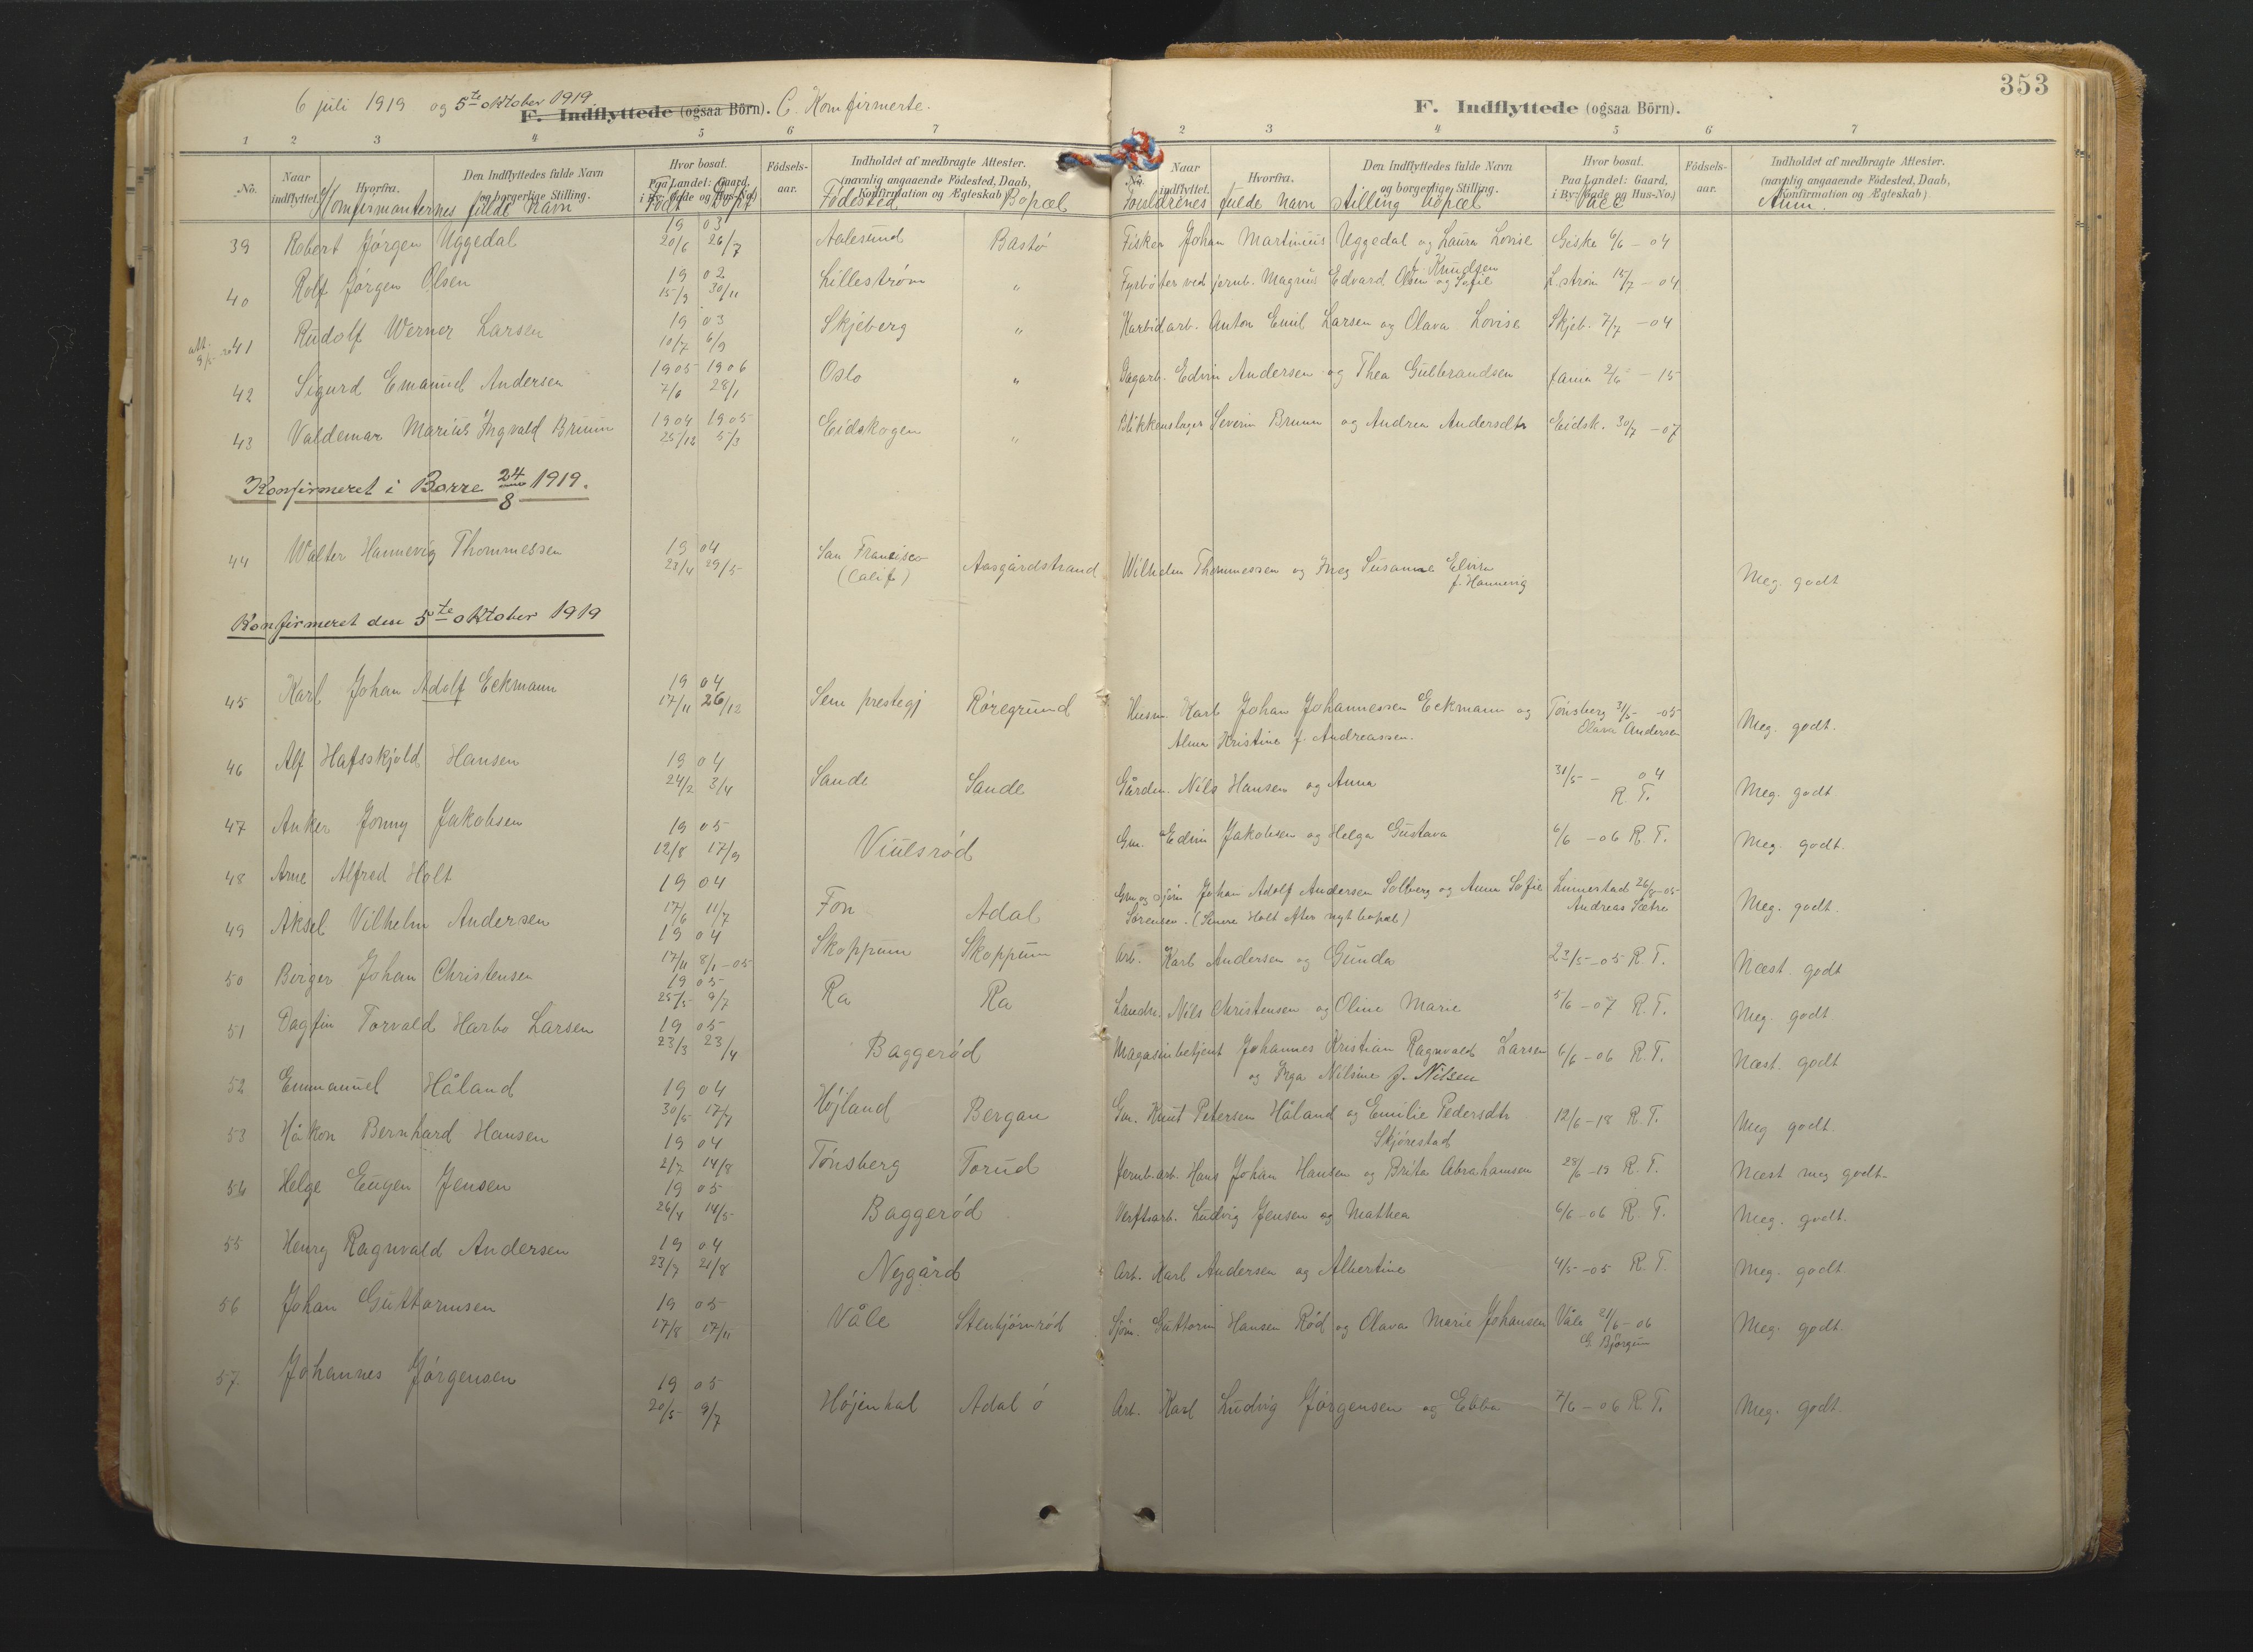 353
6 juli 1919 og 5te oktober 1919.
F. Indflyttede (ogsaa Börn). C. Komfirmerte.
F. Indflyttede (ogsaa Börn).
1 2 3 4 5 6 7
2 3 4 5 6 7
No. Naar indflyttet. Hvorfra. Den Indflyttedes fulde Navn og borgerlige Stilling. Hvor bosat. Paa Landet: Gaard, i By: Gade og Hus-No.) Födsels-aar. Indholdet af medbragte Attester. (navnlig angaaende Födested, Daab, Konfirmation og Ægteskab)
No. Naar indflyttet. Hvorfra. Den Indflyttedes fulde Navn og borgerlige Stilling. Hvor bosat. Paa Landet: Gaard, i By: Gade og Hus-No.) Födsels-aar. Indholdet af medbragte Attester. (navnlig angaaende Födested, Daab, Konfirmation og Ægteskab)
Komfirmanternes fulde Navn Født Døpt Fødested Bopæl Forældrenes fulde Navn stilling bopæl Vacc Anm.
39 Robert Jørgen Uggedal 1903 20/6 26/7 Aalesund Bastø Fisker Johan Martinius Uggedal og Laura Lovise Giske 6/6 - 04
f. Knudsen
40 Rolf Jørgen Olsen 1902 15/9 30/11 Lillestrøm " Fyrbøter ved jernb. Magnus Edvard Olsen og Sofie L.strøm 15/7 - 04
41 Rudolf Werner Larsen 1903 10/7 6/9 Skjeberg " Karbidarb. Anton Emil Larsen og Olava Lovise Skjeb. 7/7 - 04
42 Sigurd Emanuel Andersen 1905 1906 7/6 28/1 Oslo " Dagarb. Edvin Andersen og Thea Gulbrandsen 2/6 - 15
43 Valdemar Marius Ingvald Bruun 1904 1905 25/12 5/3 Eidskogen " Blikkenslager Severin Bruun og Andrea Andersdtr Eidsk. 30/7 - 07
Konfirmeret i Borre 24/8 1919.
44 Walter Hannevig Thommessen 1904 23/4 29/5 San Francisco (Calif) Aasgårdstrand Wilhelm Thommessen og Inez Susanne Elvira f. Hannevig Meg. godt
Konfirmeret den 5te oktober 1919
45 Karl Johan Adolf Eckmann 1904 17/11 26/12 Sem prestegj Røregrund Husm. Karl Johan Johannessen Eckmann og Tønsberg 31/5 - 05 Meg. godt.
Alma Kristine f. Andreassen. Olava Andersen
46 Alf Hafsskjold Hansen 1904 24/2 3/4 Sande Sande Gårdm. Nils Hansen og Anna 31/5 - 04 R T. Meg. godt
47 Anker Jonny Jakobsen 1905 12/8 17/9 Viulsrød Gm. Edvin Jakobsen og Helga Gustava 6/6 - 06 R. T. Meg. godt.
48 Arne Alfred Holt 1904 17/6 11/7 Fon Adal Gm og sjøm Johan Adolf Andersen Solberg og Anna Sofie Linnestad 26/8 - 05 Meg. godt.
Sørensen. (Senere Holt efter nyt bopæl) Andreas Sætre
49 Aksel Vilhelm Andersen 1904 17/11 8/1 - 05 Skoppum Skoppum Arb. Karl Andersen og Gunda 23/5 - 05 R. T. Næst. godt
50 Birger Johan Christensen 1905 25/5 9/7 Ra Ra Landm. Nils Christensen og Oline Marie 5/6 - 07 R. T. Meg. godt
51 Dagfin Torvald Harbo Larsen 1905 23/3 23/4 Baggerød Magasinbetjent Johannes Kristian Ragnvald Larsen 6/6 - 06 R. T. Næst. godt
og Inga Nilsine f. Nilsen
52 Emmanuel Håland 1904 30/5 17/7 Højland Bergan Gm. Knut Petersen Håland og Emilie Pedersdtr 12/6 - 18 R. T. Meg godt.
Skjørestad
53 Håkon Bernhard Hansen 1904 2/7 14/8 Tønsberg Torud Jernb.arb. Hans Johan Hansen og Brita Abrahamsen 28/6 - 19 R. T. Næst meg godt.
54 Helge Eugen Jensen 1905 26/4 14/5 Baggerød Verftsarb. Ludvig Jensen og Mathea 6/6 - 06 R. T. Meg. godt.
55 Henry Ragnvald Andersen 1904 23/7 21/8 Nygård Arb. Karl Andersen og Albertine 4/5 - 05 R. T. Meg. godt
56 Johan Guttormsen 1905 17/8 17/11 Våle Stenbjørnrød Sjøm. Guttorm Hansen Rød og Olava Marie Johansen Våle 21/6 - 06 Meg. godt.
G. Bjørgum
57 Johannes Jørgensen 1905 20/5 9/7 Højenhal Adal ø Arb. Karl Ludvig Jørgensen og Ebba 7/6 - 06 R. T. Meg. godt.